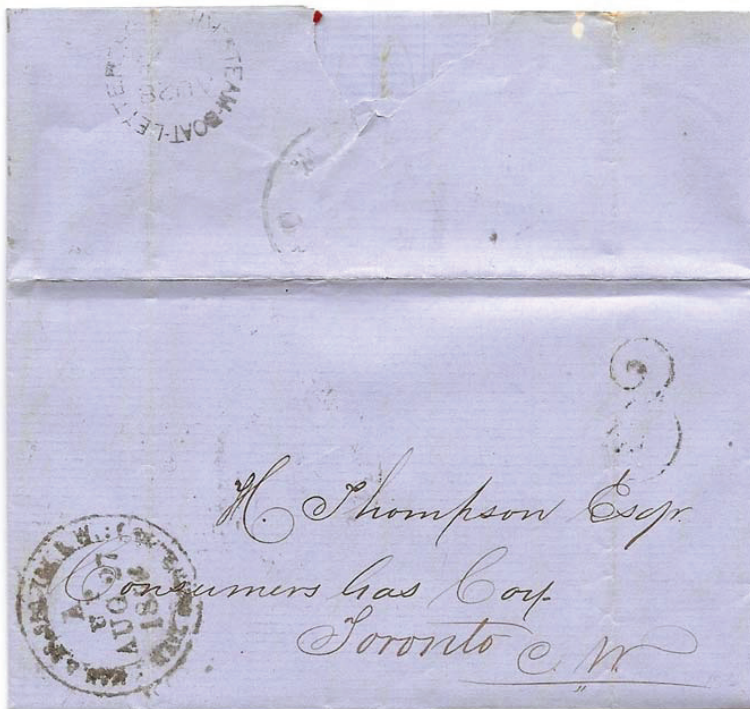 STEAM-BOAT-LETTER
AU28
3
H. Thompson Esqr.
Consumers Gas Coy.
Toronto C. W.
AUG 27